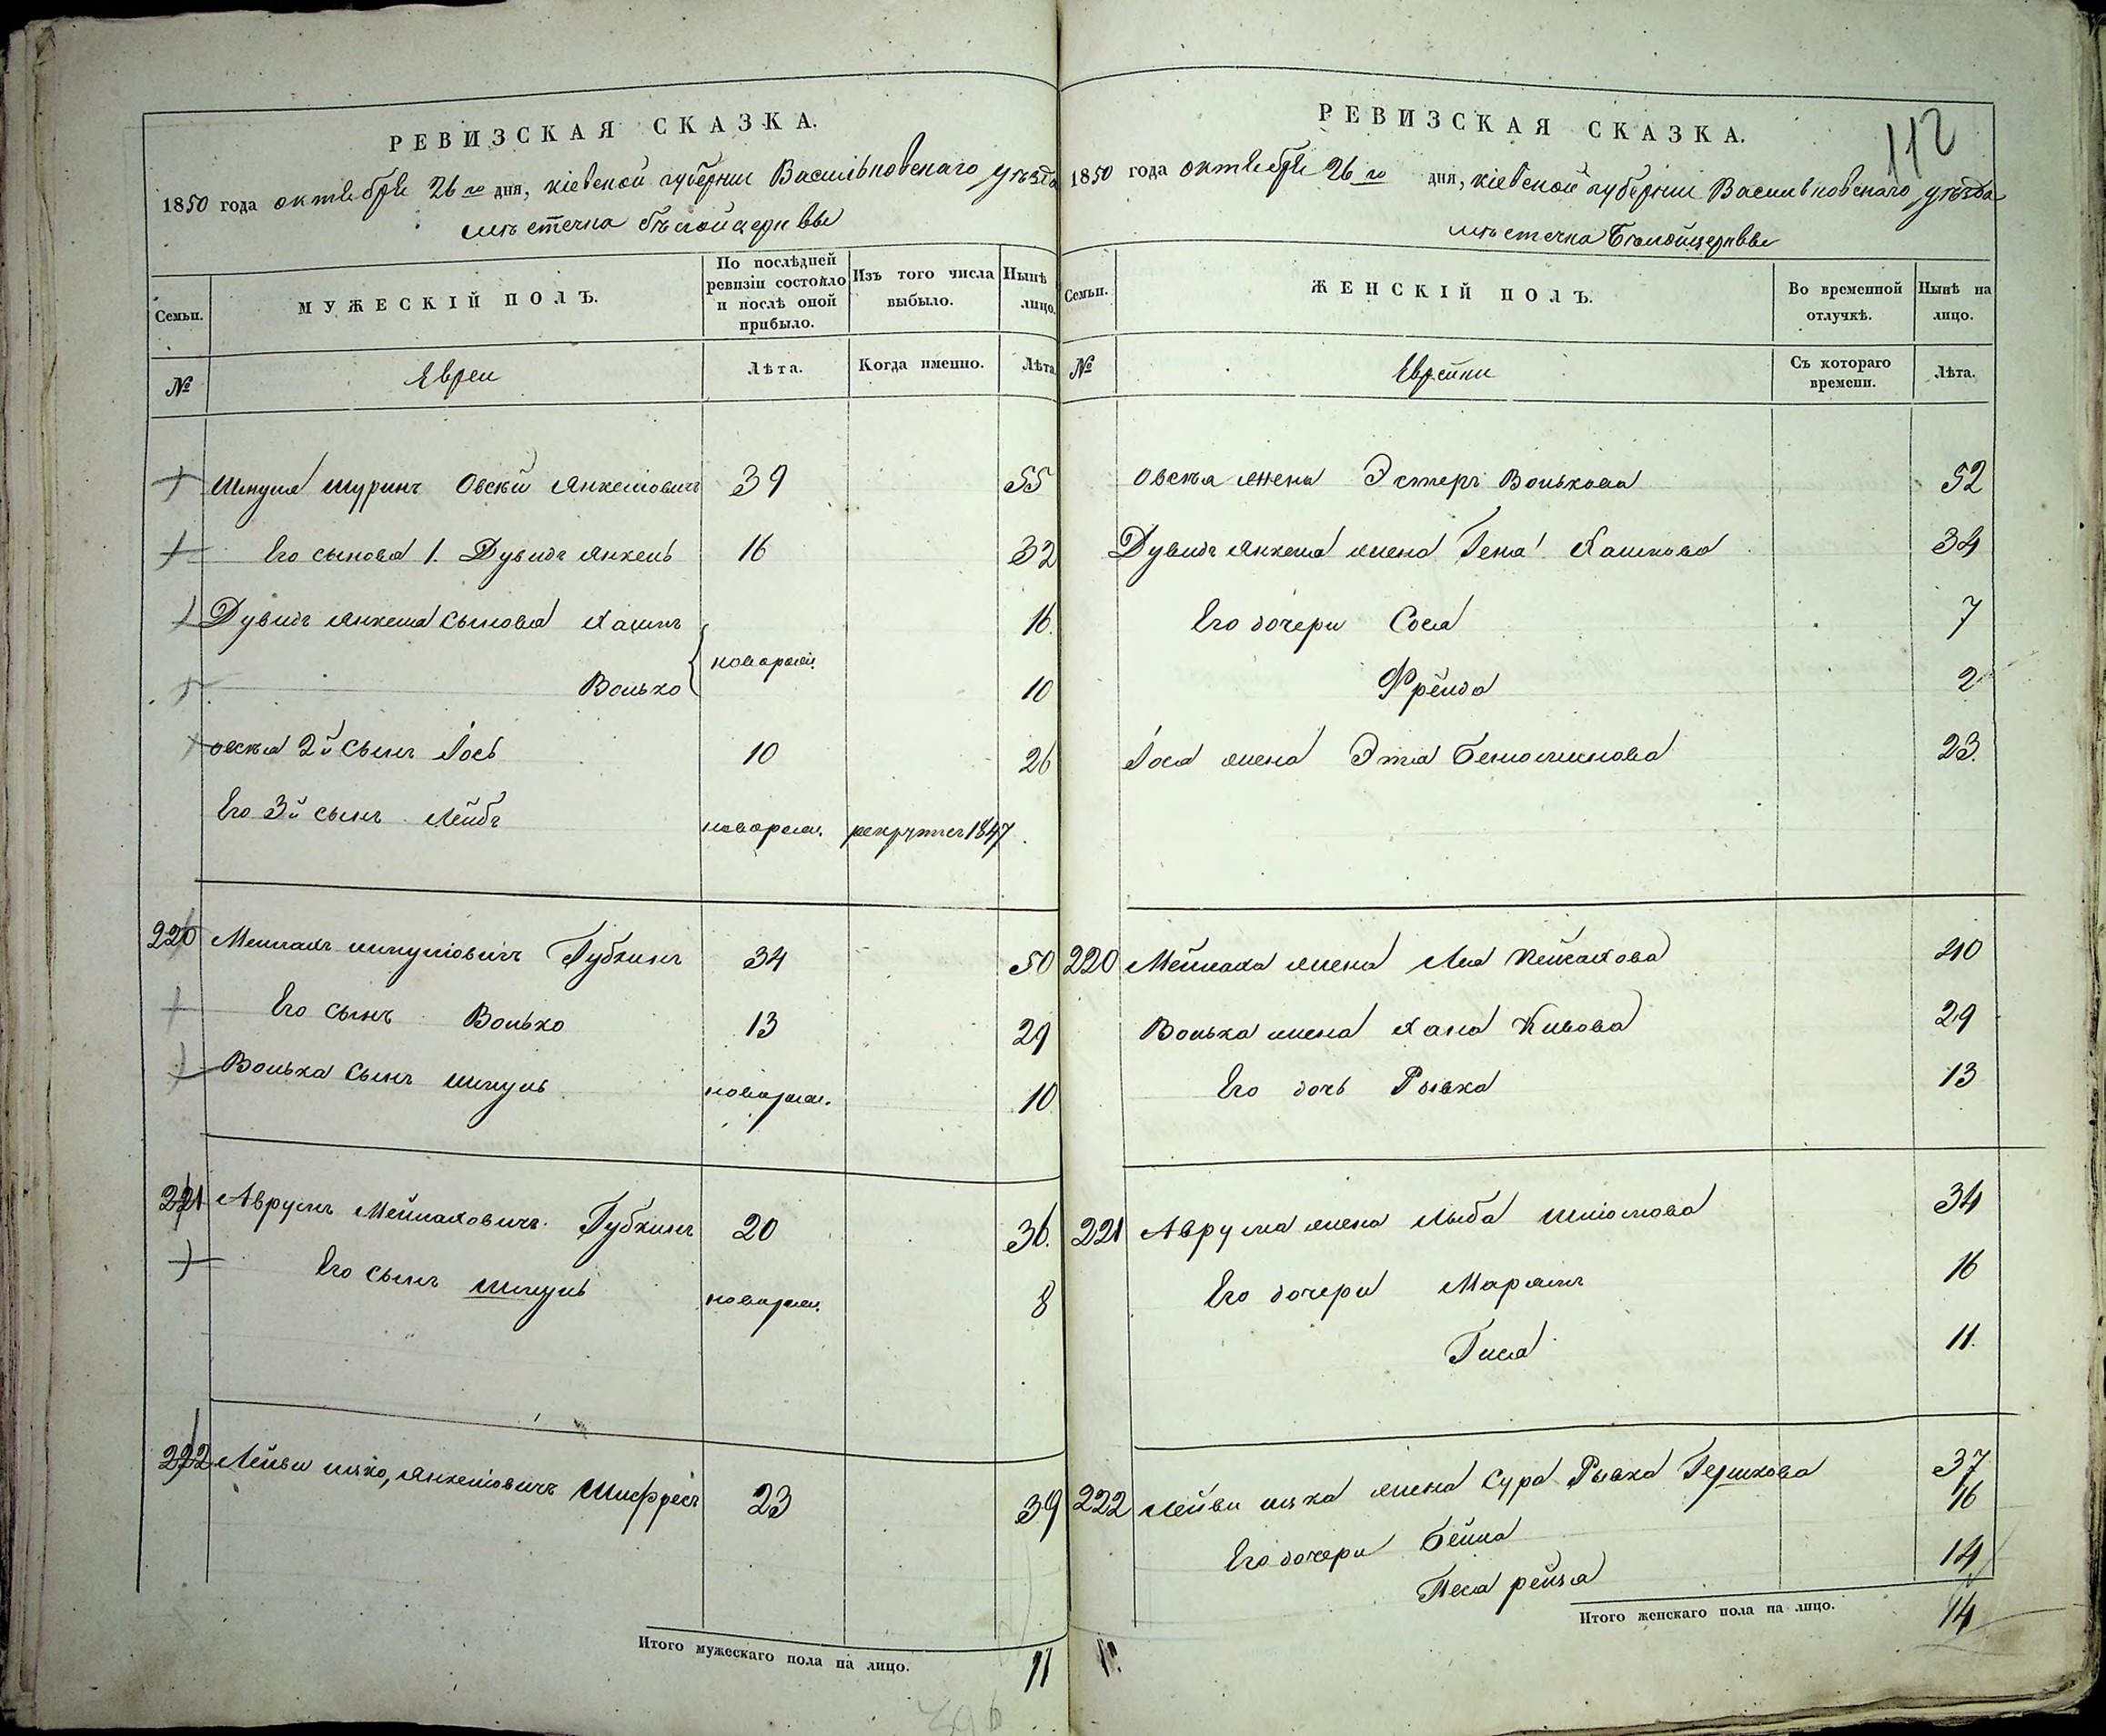 РЕВИЗСКАЯ СКАЗКА.
1850 года октября 26го дня, кіевской губерніи Васильковскаго уѣзда
мѣстечка бѣлойцеркви
Семьи.
МУЖЕСКІЙ ПОЛЪ.
По послѣдней ревизіи состояло и послѣ оной прибыло.
Изъ того числа выбыло.
Нынѣ лицо.
№
Евреи
Лѣта.
Когда именно.
Лѣта
Шмуля шуринъ Овсѣй Янкелювичъ 39 55
Его сыновья 1. Дувидъ Янкель 16 32
Дувидъ Янкеля сыновья Хаимъ 16.
новорож.
Волько 10
овсѣя 2й сынъ Іось 10 26
Его 3й сынъ Лейбъ новорож. рекрутъ 1847
220 Мейлахъ шмулювичъ Губкинъ 34 50
Его сынъ Волько 13 29
Волька сынъ шмуль новорож. 10
221 Аврумъ Мейлаховичъ Губкинъ 20 36.
Его сынъ шмуль новорож. 8
222 Лейви ицко, Янкелювичъ Шифресъ 23 39
Итого мужескаго пола на лицо. 11
396
РЕВИЗСКАЯ СКАЗКА.
112
1850 года октября 26го дня, кіевской губерніи Васильковскаго уѣзда
мѣстечка Бѣлойцеркви
Семьи.
ЖЕНСКІЙ ПОЛЪ.
Во временной отлучкѣ.
Нынѣ на лицо.
№
Еврейки
Съ котораго времени.
Лѣта.
Овсѣя жена Эстеръ Волькова 52
Дувидъ Янкеля жена Гена 34
Его дочери Сося 7
Фрейда 2
Іося жена Эта 23.
220 Мейлаха жена Лея 40
Волька жена Хана 29
Его дочь Рывка 13
221 Аврума жена Лыба Шліомова 34
Его дочери Марямъ 16
Гися 11.
222 Лейви ицка жена Сура Рывка Гершкова 37
Его дочери Бейла 16
Песя рейзя 14
Итого женскаго пола на лицо. 14